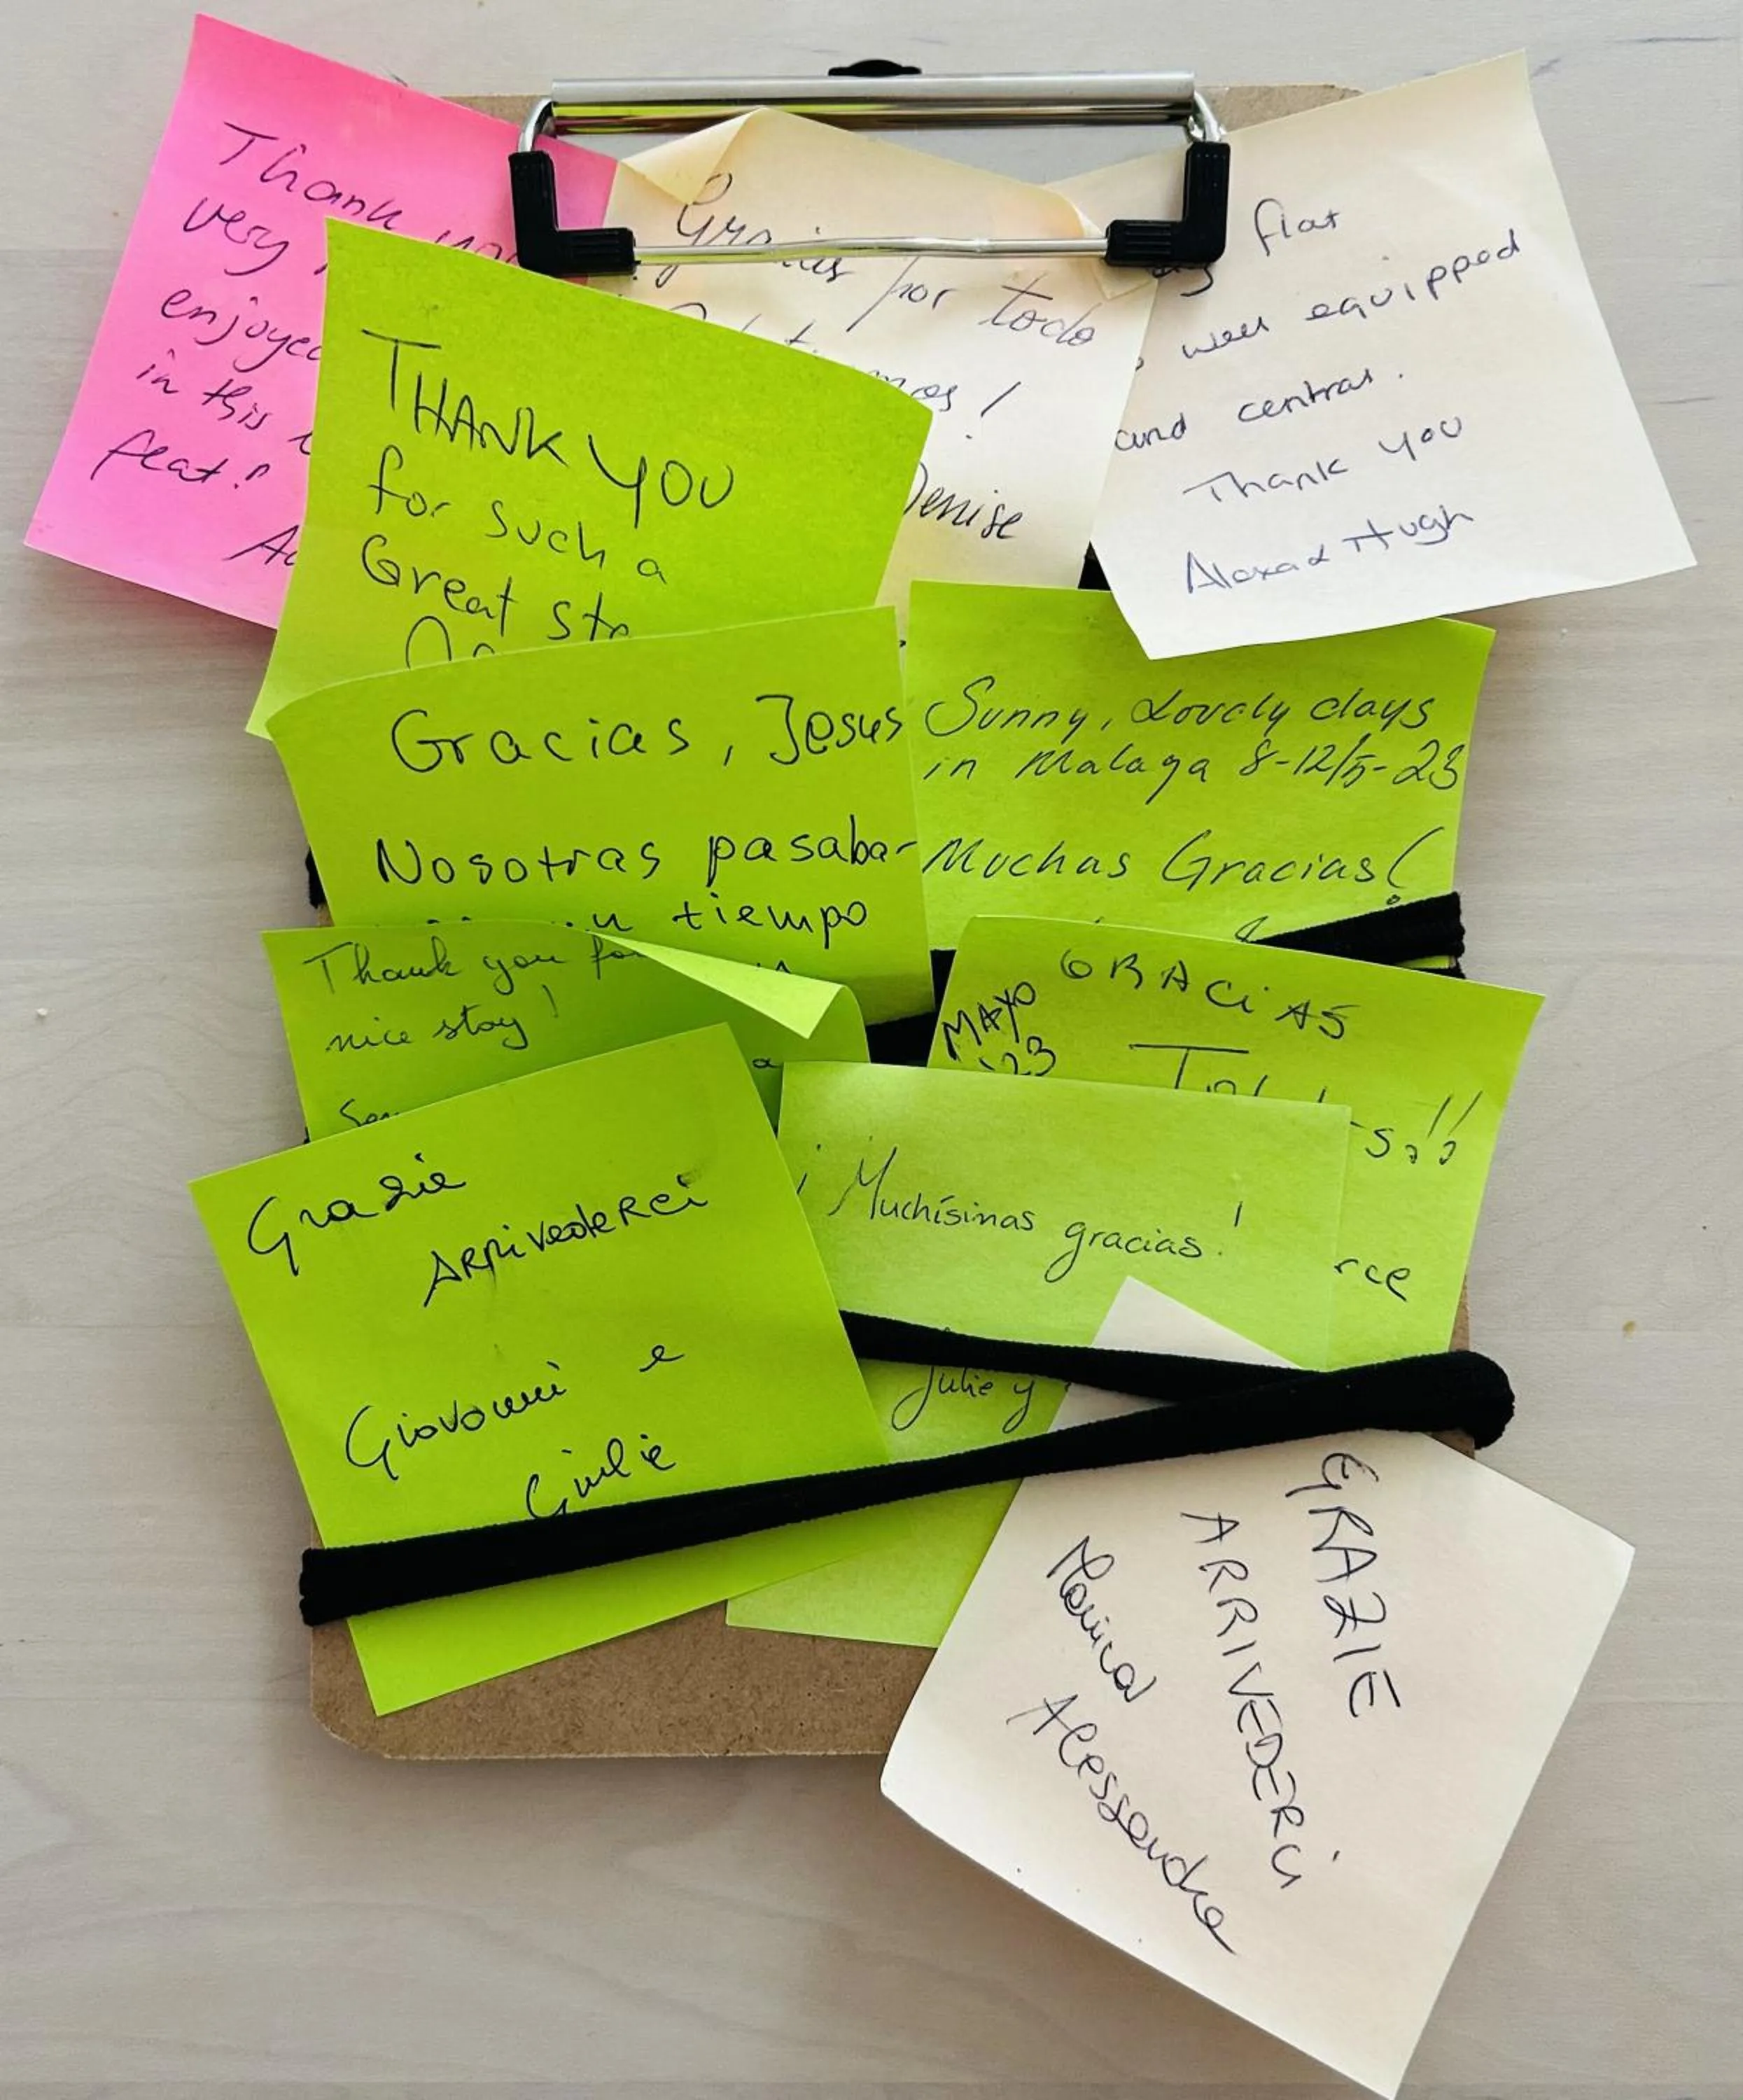 Thank you
very
enjoyed
in this
feat!
Gracias por todo
Denise
flat
well equipped
and central.
Thank you
Alexa & Hugh
THANK YOU
for such a
Great
Gracias, Jesus
Nosotras pasaba-
tiempo
Sunny, Lovely days
in Malaga 8-12/5-23
Muchas Gracias!
Thank you for
nice stay!
GRACiAS
MAYO
'23
¡Muchísimas gracias!
Julie y
Grazie
ARRivedeRci
Giovanni e
Giulie
GRAZIE
ARRIVEDERCi
Monica
Alessandra